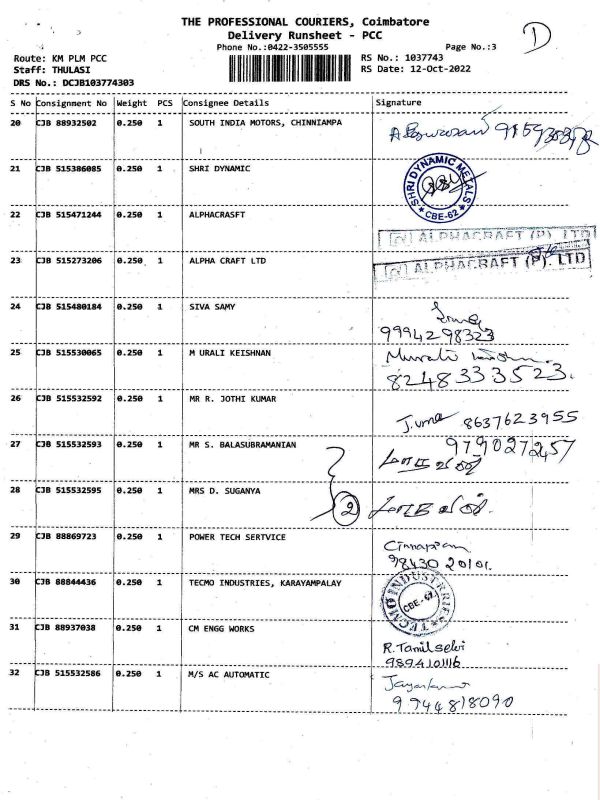 THE PROFESSIONAL COURIERS, Coimbatore
Delivery Runsheet - PCC
Phone No.:0422-3505555 Page No.:3
Route: KM PLM PCC RS No.: 1037743
Staff: THULASI RS Date: 12-Oct-2022
DRS No.: DCJB103774303
S No Consignment No Weight PCS Consignee Details Signature
20 CJB 88932502 0.250 1 SOUTH INDIA MOTORS, CHINNIAMPA
21 CJB 515386085 0.250 1 SHRI DYNAMIC
SHRI DYNAMIC METALS
CBE-62
22 CJB 515471244 0.250 1 ALPHACRASFT
ALPHACRAFT (P) LTD
23 CJB 515273206 0.250 1 ALPHA CRAFT LTD
ALPHACRAFT (P). LTD
24 CJB 515480184 0.250 1 SIVA SAMY
9994298323
25 CJB 515530065 0.250 1 M URALI KEISHNAN Murali
8248333523.
26 CJB 515532592 0.250 1 MR R. JOTHI KUMAR
J.uma 8637623955
27 CJB 515532593 0.250 1 MR S. BALASUBRAMANIAN 979027257
28 CJB 515532595 0.250 1 MRS D. SUGANYA
2
29 CJB 88869723 0.250 1 POWER TECH SERTVICE
98430 20101.
30 CJB 88844436 0.250 1 TECMO INDUSTRIES, KARAYAMPALAY
CBE-62
31 CJB 88937038 0.250 1 CM ENGG WORKS
R.Tamilselvi
9894101116
32 CJB 515532586 0.250 1 M/S AC AUTOMATIC
9944818090